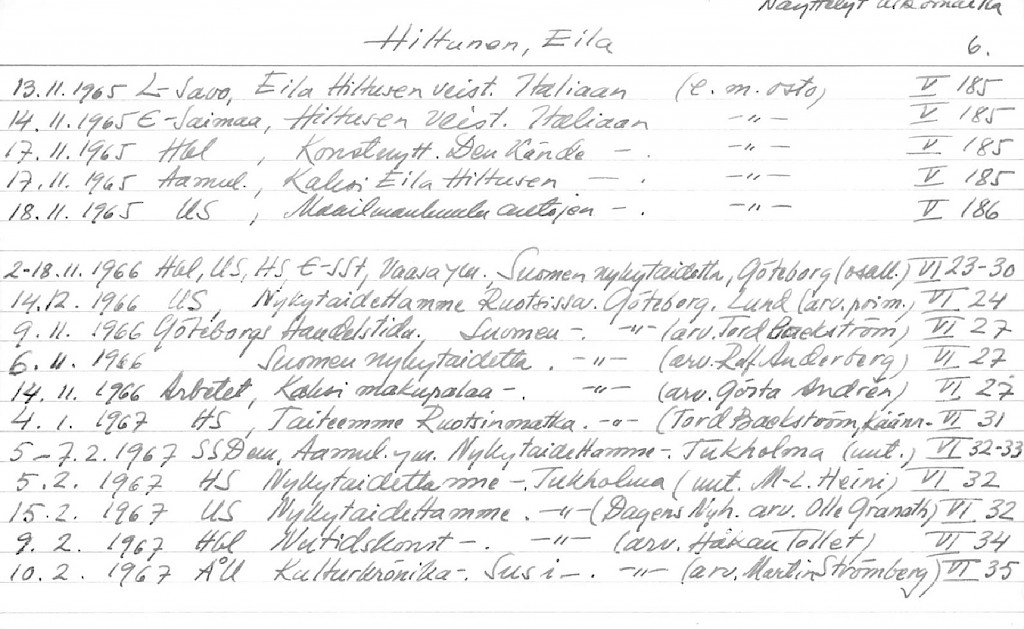 Näyttelyt ulkomailla
Hiltunen, Eila 6.
13.11.1965 L-Savo, Eila Hiltusen veist. Italiaan (e.m. osto) V 185
14.11.1965 E-Saimaa, Hiltusen veist. Italiaan -"- V 185
17.11.1965 Hbl, Konstnytt. Den Kände -. -"- V 185
17.11.1965 Aamul., Kaksi Eila Hiltusen -. -"- V 185
18.11.1965 US, Maailmankuulu -. -"- V 186
2-18.11.1966 Hbl, US, HS, E-SSt, Vaasa ym. Suomen nykytaidetta, Göteborg (osall.) VI 23-30
14.12.1966 US, Nykytaidettamme Ruotsissa. Göteborg. Lund (arv. prim.) VI 24
9.11.1966 Göteborgs Handelstidn. Suomen -. -"- (arv. Tord Baeckström) VI 27
6.11.1966 Suomen nykytaidetta. -"- (arv. Raf. Anderberg) VI 27
14.11.1966 Arbetet, Kaksi makupalaa -. -"- (arv. Gösta Andrén) VI 27
4.1.1967 HS, Taiteemme Ruotsinmatka. -"- (Tord Baeckström, käänn. VI 31
5-7.2.1967 SSDem, Aamul. ym. Nykytaidettamme -. Tukholma (uut.) VI 32-33
5.2.1967 HS Nykytaidettamme -. Tukholma (uut. M-L. Heini) VI 32
15.2.1967 US Nykytaidettamme. -"- (Dagens Nyh. arv. Olle Granath) VI 32
9.2.1967 Hbl Nutidskonst -. -"- (arv. Håkan Tollet) VI 34
10.2.1967 ÅU Kulturkrönika -. Susi -. -"- (arv. Martin Strömberg) VI 35